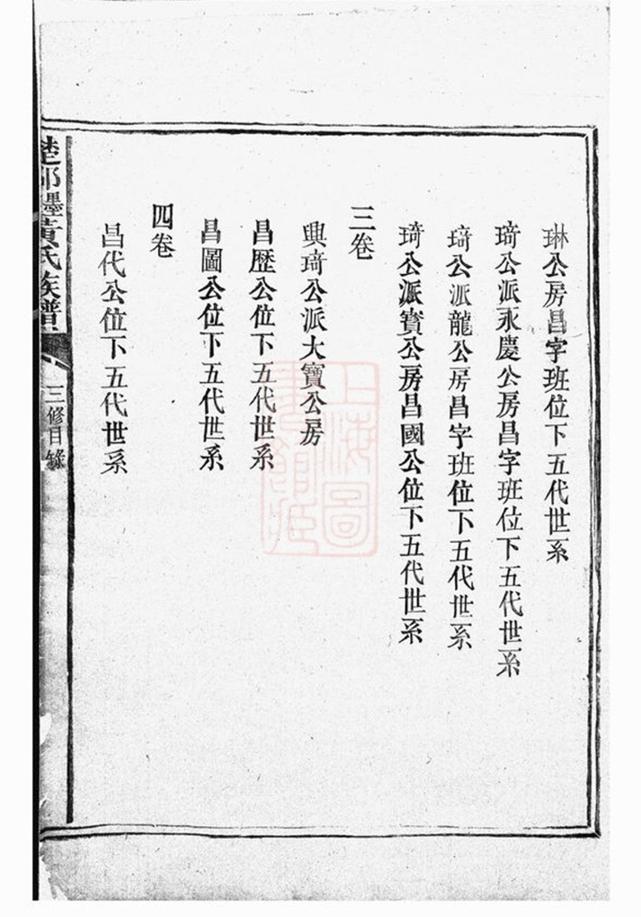 琳公房昌字班位下五代世系
琦公派永慶公房昌字班位下五代世系
琦公派龍公房昌字班位下五代世系
琦公派寳公房昌國公位下五代世系
三卷
興琦公派大寶公房
昌歴公位下五代世系
昌圖公位下五代世系
四卷
昌代公位下五代世系
楚邵墨黃氏族譜
三修目錄
上海圖
書館藏